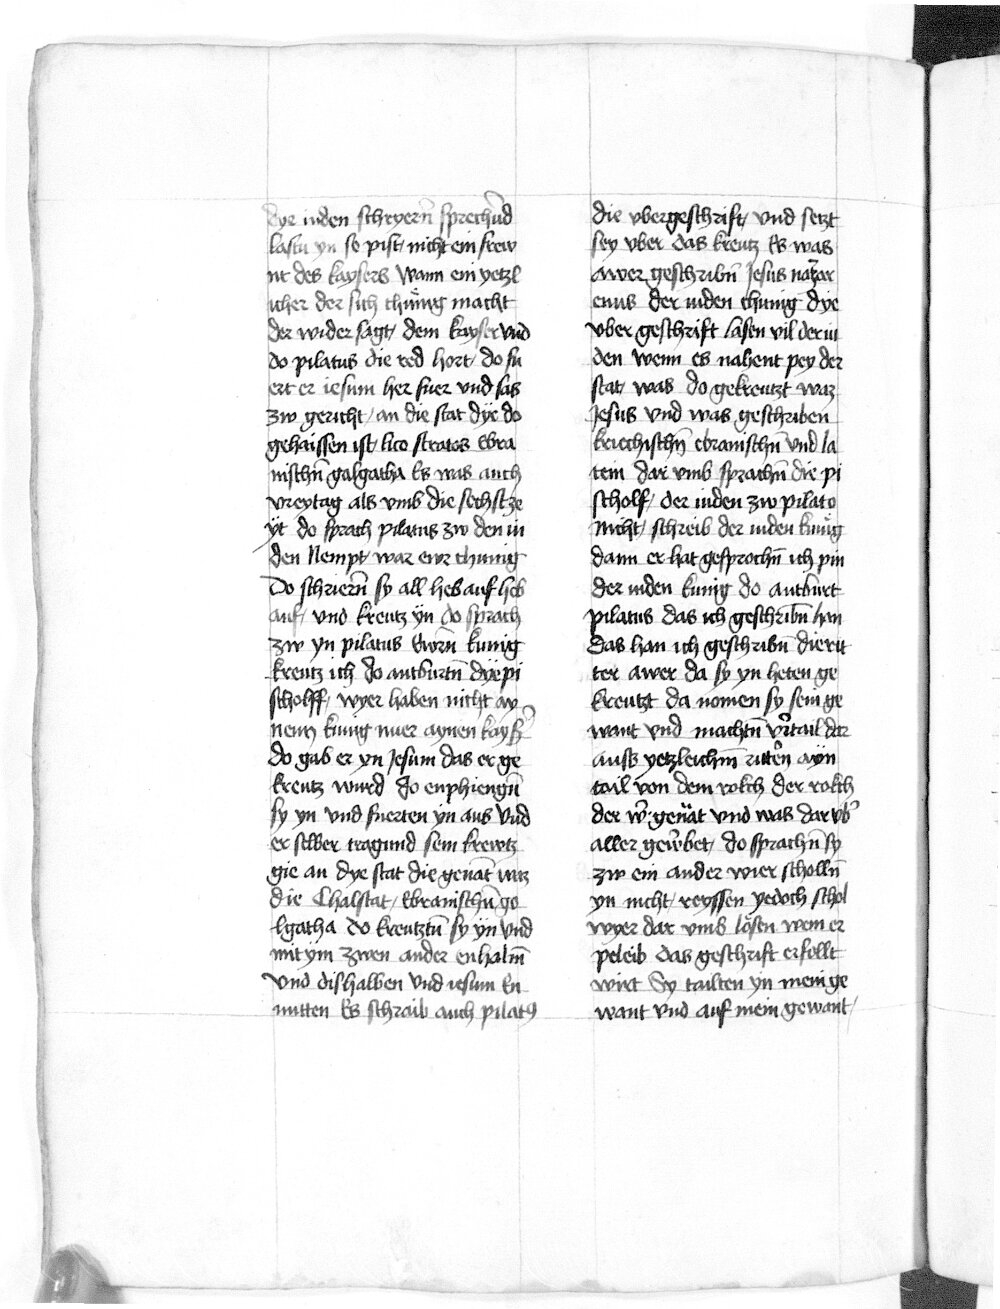 dye iuden schryern̄ sprechn̄d
lastu yn so pist nicht ein frew
nt des kaysers wann ein yetzl
icher der sich chünig macht
der wider sagt dem kayser vnd
do pilatus die red hort do fu
ert er iesum her fuer vnd sas
zw gericht an die stat dye do
gehaissen ist lico stratos ebra
nischn̄ galgatha Es was auch
vreytag als vmb die sechst ze
yt do sprach pilatus zw den iu
den Nempt war eur chunig
Do schriern̄ sy all heb auf heb
auf vnd kreutz yn do sprach
zw yn pilatus Ewrn̄ kunig
kreutz ich do antburtn̄ dye pi
scholff wyer haben nicht ay
nen kunig nuer aynen kays̄
do gab er yn Jesum das er ge
kreutz wurd do enphiengn̄
sy yn vnd fuerten yn aus Vnd
er selber tragund sein krewtz
gie an dye stat die genāt waz
die Chalstat Ebranischn̄ go
lgatha do kreutztn̄ sy yn vnd
mit ym zwen ander enhalm̄
vnd dishalben vnd iesum En
mitten Es schraib auch pilatꝰ
die vbergeschrift vnd setzt
sey vber das kreutz Es was
awer geschribn̄ Jesus nazar
enus der iuden chunig dye
vber geschrift lasen vil der iu
den wenn es nahent pey der
stat was do gekreutzt waz
Jesus vnd was geschriben
kriechischn̄ ebranischn̄ vnd la
tein dar vmb sprachn̄ die pi
scholf der iuden zw pilato
Nicht schreib der iuden kunig
dann er hat gesprochn̄ ich pin
der iuden kunig do antburt
pilatus das ich geschribn̄ han
das han ich geschribn̄ die rit
ter awer da sy yn heten ge
kreutzt da nomen sy sein ge
want vnd machtn̄ virtail dar
auss yetzleichm̄ rittern ayn
tail von dem rokch der rokch
der w̄ genāt vnd was dar vbꝰ
aller gew̄bet do sprachn̄ sy
zw ein ander wier schollñ
yn nicht reyssen yedoch schol
wyer dar vmb lösen wem er
peleib das geschrift erfollt
wirt Sy tailten yn mein ge
want vnd auf mein gewant